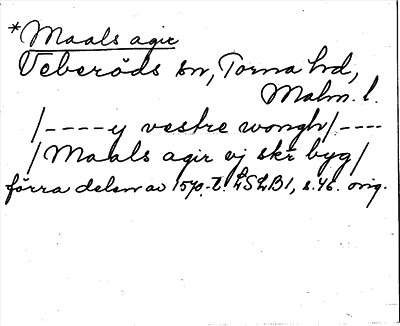 *Maals agir
Veberöds sn, Torna hd,
Malm. l.
/----y vestre wongh/.----
/Maals agir vj skr byg/
förra delen av 15 -t. LSLB1, s.46. orig.